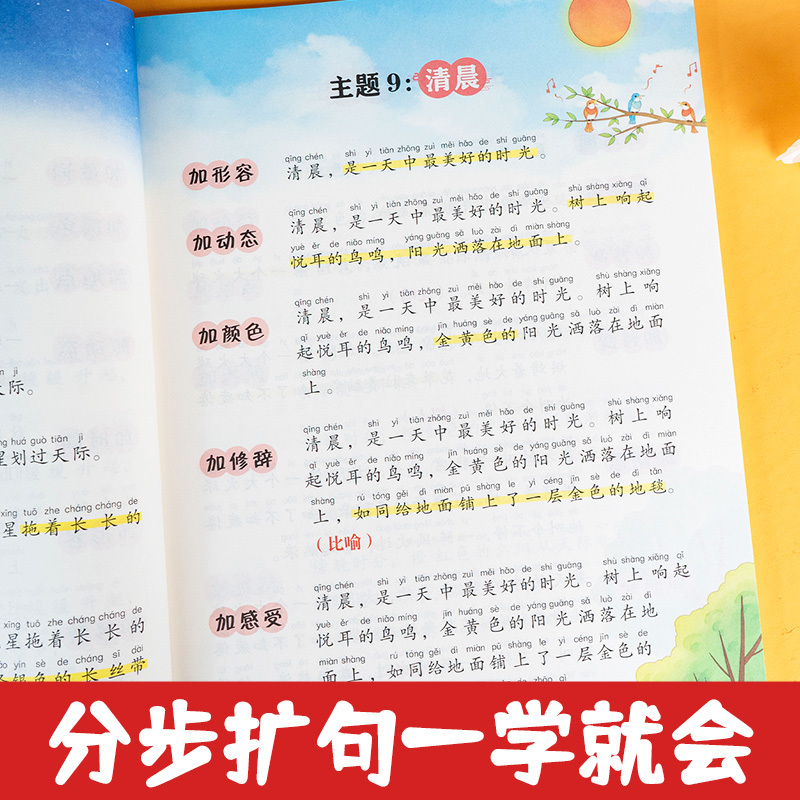 主题9：清晨
加形容
qīng chén shì yì tiān zhōng zuì měi hǎo de shí guāng
清晨，是一天中最美好的时光。
加动态
qīng chén shì yì tiān zhōng zuì měi hǎo de shí guāng shù shàng xiǎng qǐ
清晨，是一天中最美好的时光。树上响起
yuè ěr de niǎo míng yáng guāng sǎ luò zài dì miàn shàng
悦耳的鸟鸣，阳光洒落在地面上。
加颜色
qīng chén shì yì tiān zhōng zuì měi hǎo de shí guāng shù shàng xiǎng
清晨，是一天中最美好的时光。树上响
qǐ yuè ěr de niǎo míng jīn huáng sè de yáng guāng sǎ luò zài dì miàn
起悦耳的鸟鸣，金黄色的阳光洒落在地面
shàng
上。
加修辞
qīng chén shì yì tiān zhōng zuì měi hǎo de shí guāng shù shàng xiǎng
清晨，是一天中最美好的时光。树上响
qǐ yuè ěr de niǎo míng jīn huáng sè de yáng guāng sǎ luò zài dì miàn
起悦耳的鸟鸣，金黄色的阳光洒落在地面
shàng rú tóng gěi dì miàn pū shàng le yì céng jīn sè de dì tǎn
上，如同给地面铺上了一层金色的地毯。
（比喻）
加感受
qīng chén shì yì tiān zhōng zuì měi hǎo de shí guāng shù shàng xiǎng qǐ
清晨，是一天中最美好的时光。树上响起
yuè ěr de niǎo míng jīn huáng sè de yáng guāng sǎ luò zài dì
悦耳的鸟鸣，金黄色的阳光洒落在地
miàn shàng rú tóng gěi dì miàn pū shàng le yì céng jīn sè de
面上，如同给地面铺上了一层金色的
jì
天际。
huá guò tiān jì
星划过天际。
xīng tuō zhe cháng cháng de
星拖着长长的
xīng tuō zhe cháng cháng de
星拖着长长的
yín sè de cháng sī dài
银色的长丝带
分步扩句一学就会